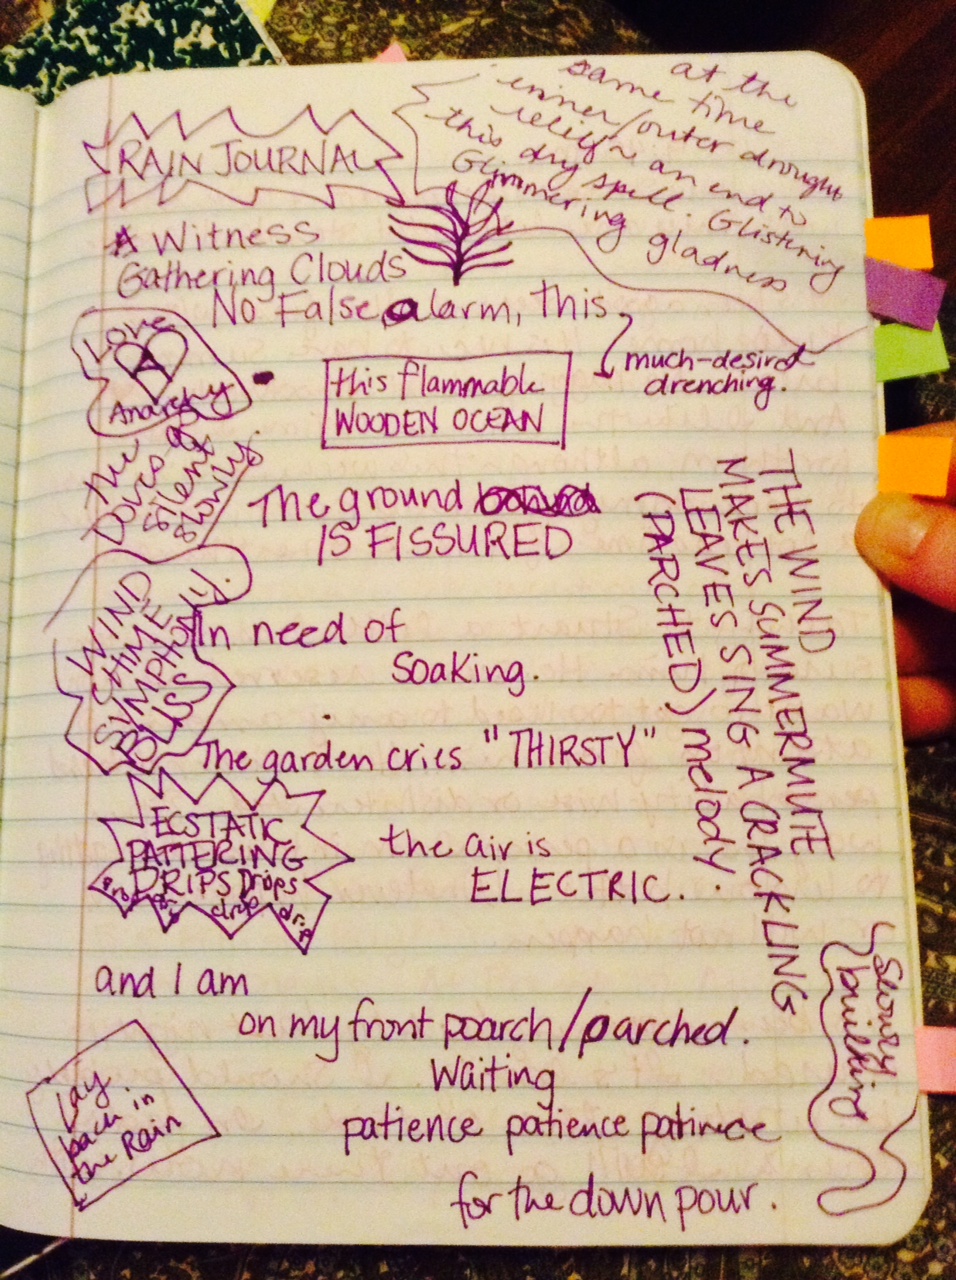 RAIN JOURNAL
at the
same time
inner/outer drought
relief ~ an end to
this dry spell. Glistening
Glimmering gladness
A Witness
Gathering Clouds
No False alarm, this
much-desired
drenching.
Love
A
Anarchy
this flammable
WOODEN OCEAN
the
Doves of
Silent
slowily.
The ground
IS FISSURED
THE WIND
MAKES SUMMERMUTE
LEAVES SING A CRACKLING
(PARCHED) melody.
WIND
CHIME
SYMPHONY.
BLISS
In need of
Soaking.
The garden cries "THIRSTY"
ECSTATIC
PATTERING
DRIPS Drops
drip
drip
the air is
ELECTRIC.
and I am
on my front poarch/parched.
Waiting
patience patience patience
for the down pour.
Lay
back in
the Rain
Slowly
building